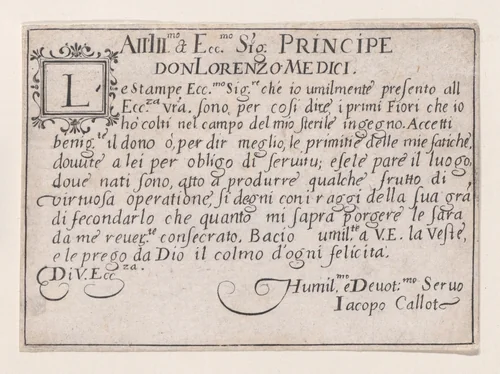 All'Ill.mo & Ecc.mo Sig. PRINCIPE
DON LORENZO MEDICI.
Le Stampe Ecc.mo Sig.re che io umilmente presento all
Ecc.za vra. sono, per cosi dire, i primi Fiori che io
hò colti nel campo del mio sterile ingegno. Accetti
benig.te il dono ò, per dir meglio, le primitie delle mie fatiche,
douute a lei per obligo di seruitu; e se le pare il luogo,
doue nati sono, atto a produrre qualche frutto di
virtuosa operatione, si degni con i raggi della sua grã
di fecondarlo che quanto mi saprà porgere le sarà
da me reuer.te consecrato. Bacio umil.te a V.E. la Veste,
e le prego da Dio il colmo d'ogni felicità.
Di V. Ecc.za.
Humil.mo e Deuot.mo Seruo
Iacopo Callot